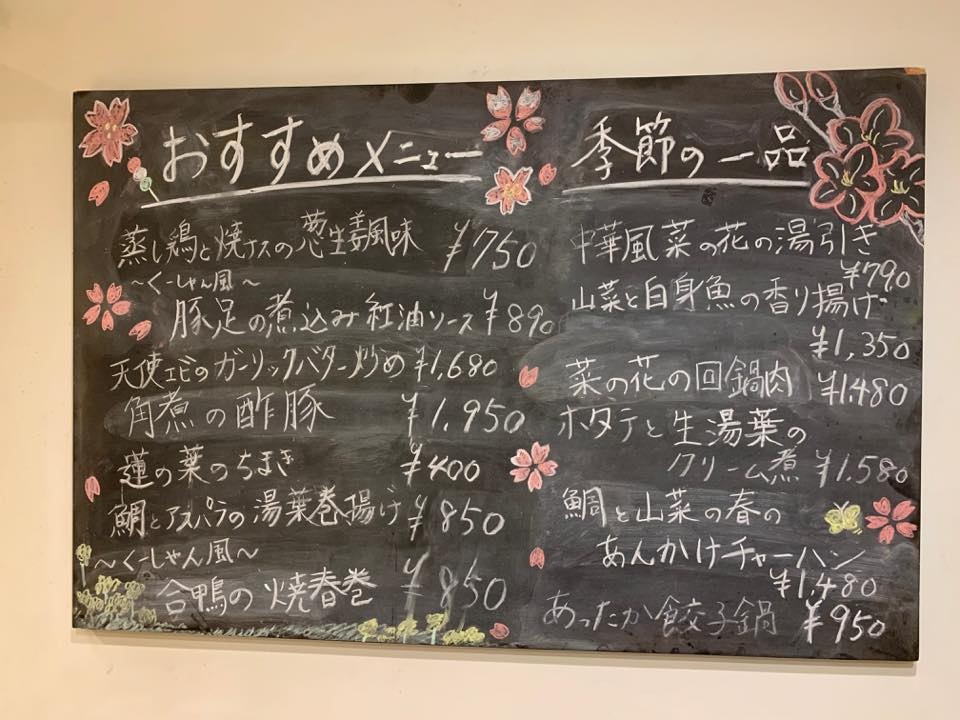 おすすめメニュー
蒸し鶏と焼ナスの葱生姜風味 ¥750
～くーしゃん風～
豚足の煮込み 紅油ソース ¥890
天使エビのガーリックバター炒め ¥1,680
角煮の酢豚 ¥1,950
蓮の葉のちまき ¥400
鯛とアスパラの湯葉巻揚げ ¥850
～くーしゃん風～
合鴨の焼春巻 ¥850
季節の一品
中華風菜の花の湯引き
¥790
山菜と白身魚の香り揚げ
¥1,350
菜の花の回鍋肉 ¥1,480
ホタテと生湯葉の
クリーム煮 ¥1,580
鯛と山菜の春の
あんかけチャーハン
¥1,480
あったか餃子鍋 ¥950